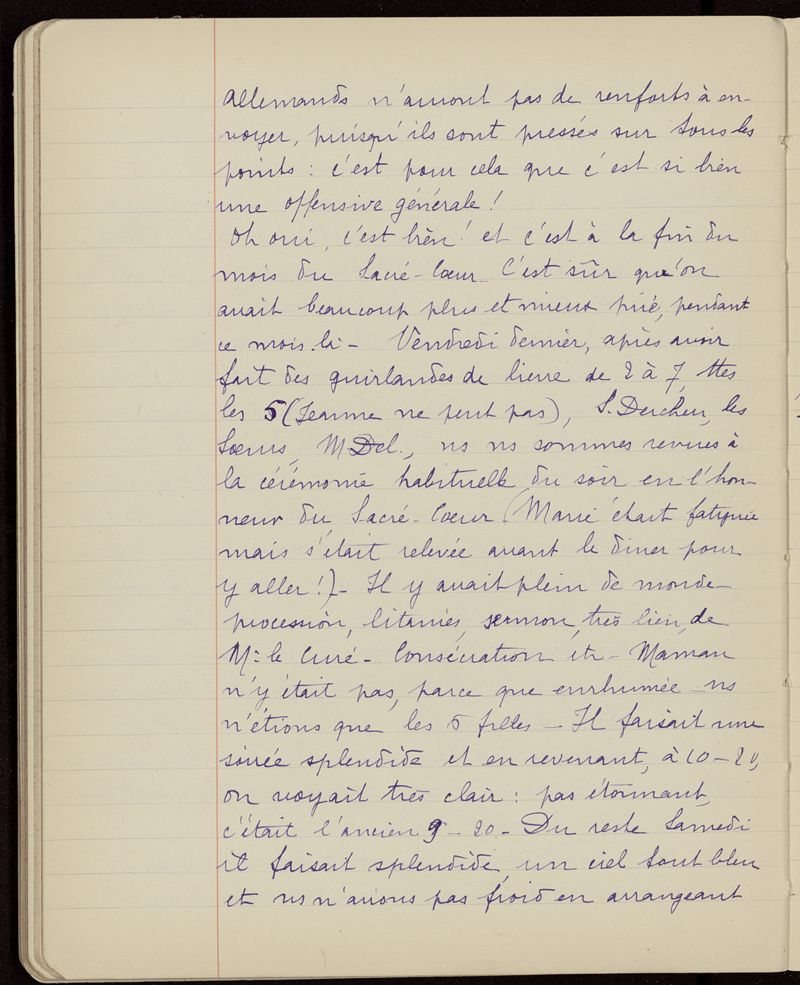 allemands n'auront pas de renforts à en-
voyer, puisqu'ils sont pressés sur tous les
points : c'est pour cela que c'est si bien
une offensive générale !
Oh oui, c'est bien ! et c'est à la fin du
mois du Sacré-Cœur. C'est sûr qu'on
avait beaucoup plus et mieux prié, pendant
ce mois-là - Vendredi dernier, après avoir
fait des guirlandes de lierre de 2 à 7, ttes
les 5 (Jeanne ne peut pas), les
Sœurs, M Del., ns ns sommes revues à
la cérémonie habituelle du soir en l'hon-
neur du Sacré-Cœur (Marie était fatiguée
mais s'était relevée avant le dîner pour
y aller !) - Il y avait plein de monde -
procession, litanies, sermon, très bien, de
Mr le Curé - Consécration etc - Maman
n'y était pas, parce que enrhumée - ns
n'étions que les 5 filles - Il faisait une
soirée splendide et en revenant, à 10-20,
on voyait très clair : pas étonnant,
c'était l'ancien 9-20 - Du reste Samedi
il faisait splendide, un ciel tout bleu
et ns n'avions pas froid en arrangeant